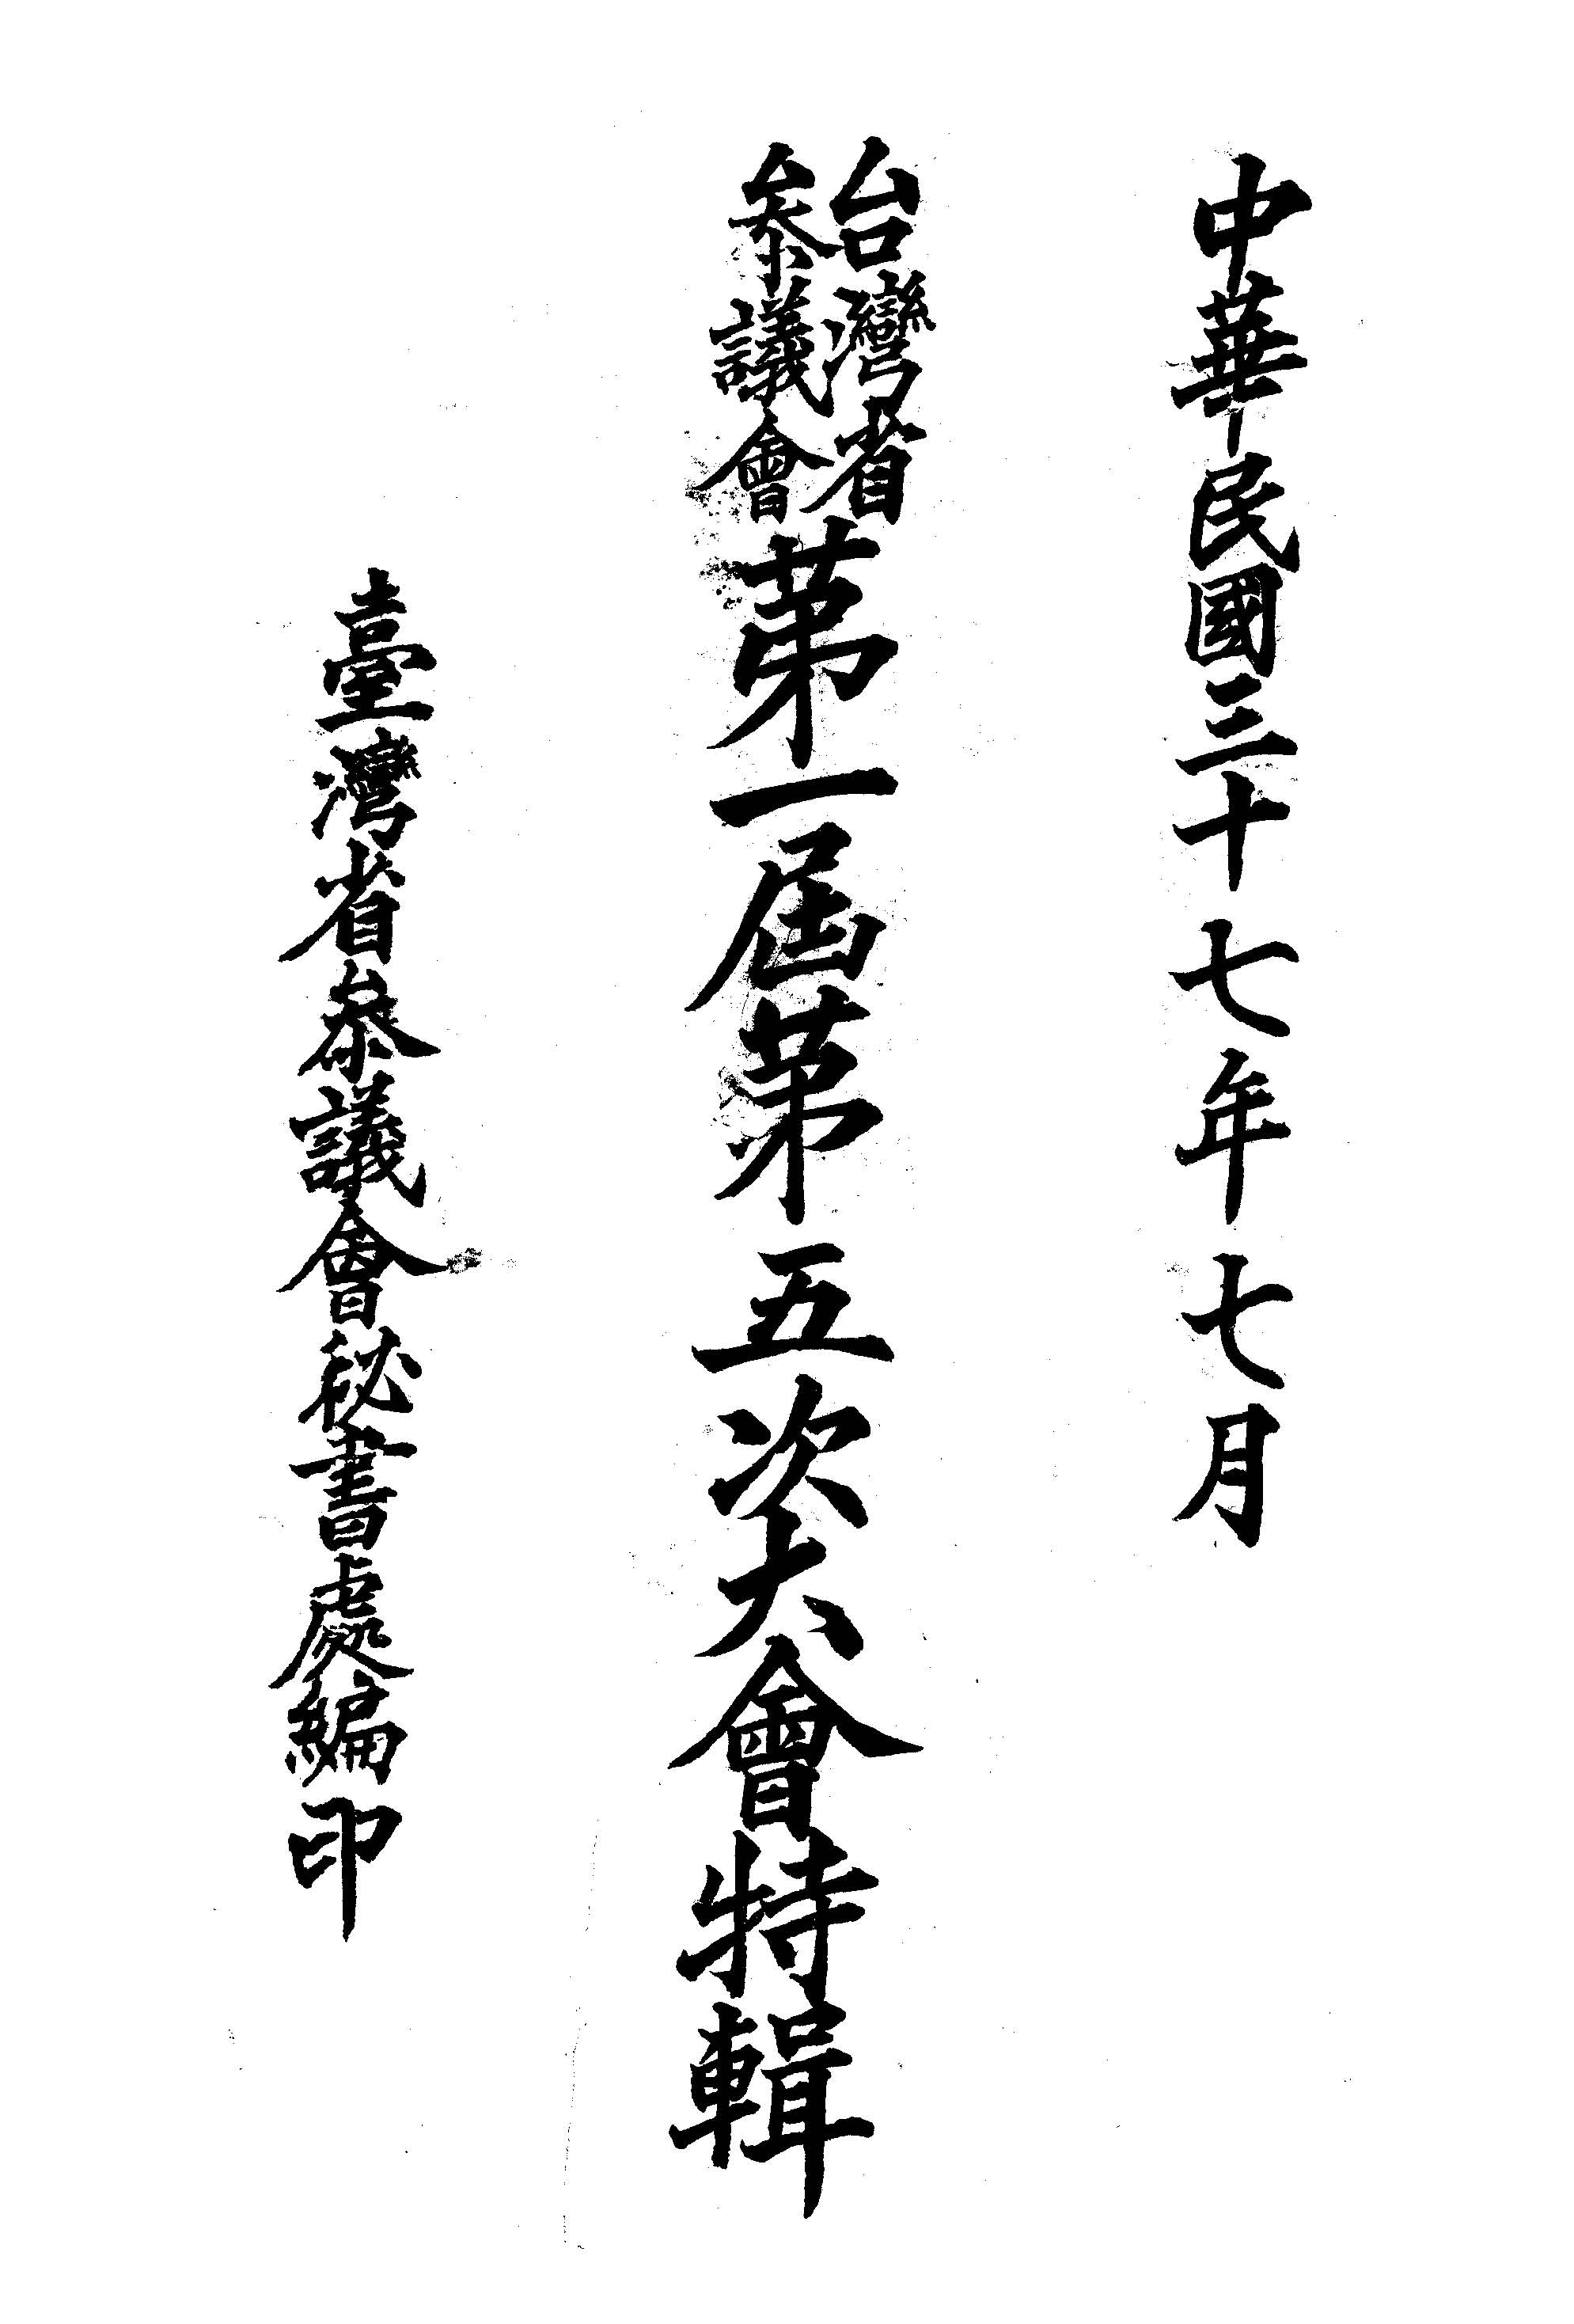 中華民國三十七年七月
台灣省
參議會
第一屆第五次大會特輯
臺灣省參議會秘書處編印